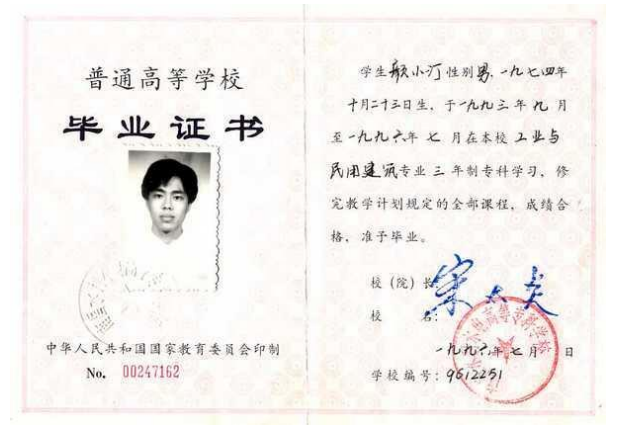 普通高等学校
毕业证书
中华人民共和国国家教育委员会印制
No. 00247162
学生 小汀 性别男,一九七四年
十月二十三日生,于一九九三年九月
至一九九六年七月在本校工业与
民用建筑专业三年制专科学习,修
完教学计划规定的全部课程,成绩合
格,准予毕业。
校(院)长
校 名:
一九九六年七月 日
学校编号:9612251
高等专科学校